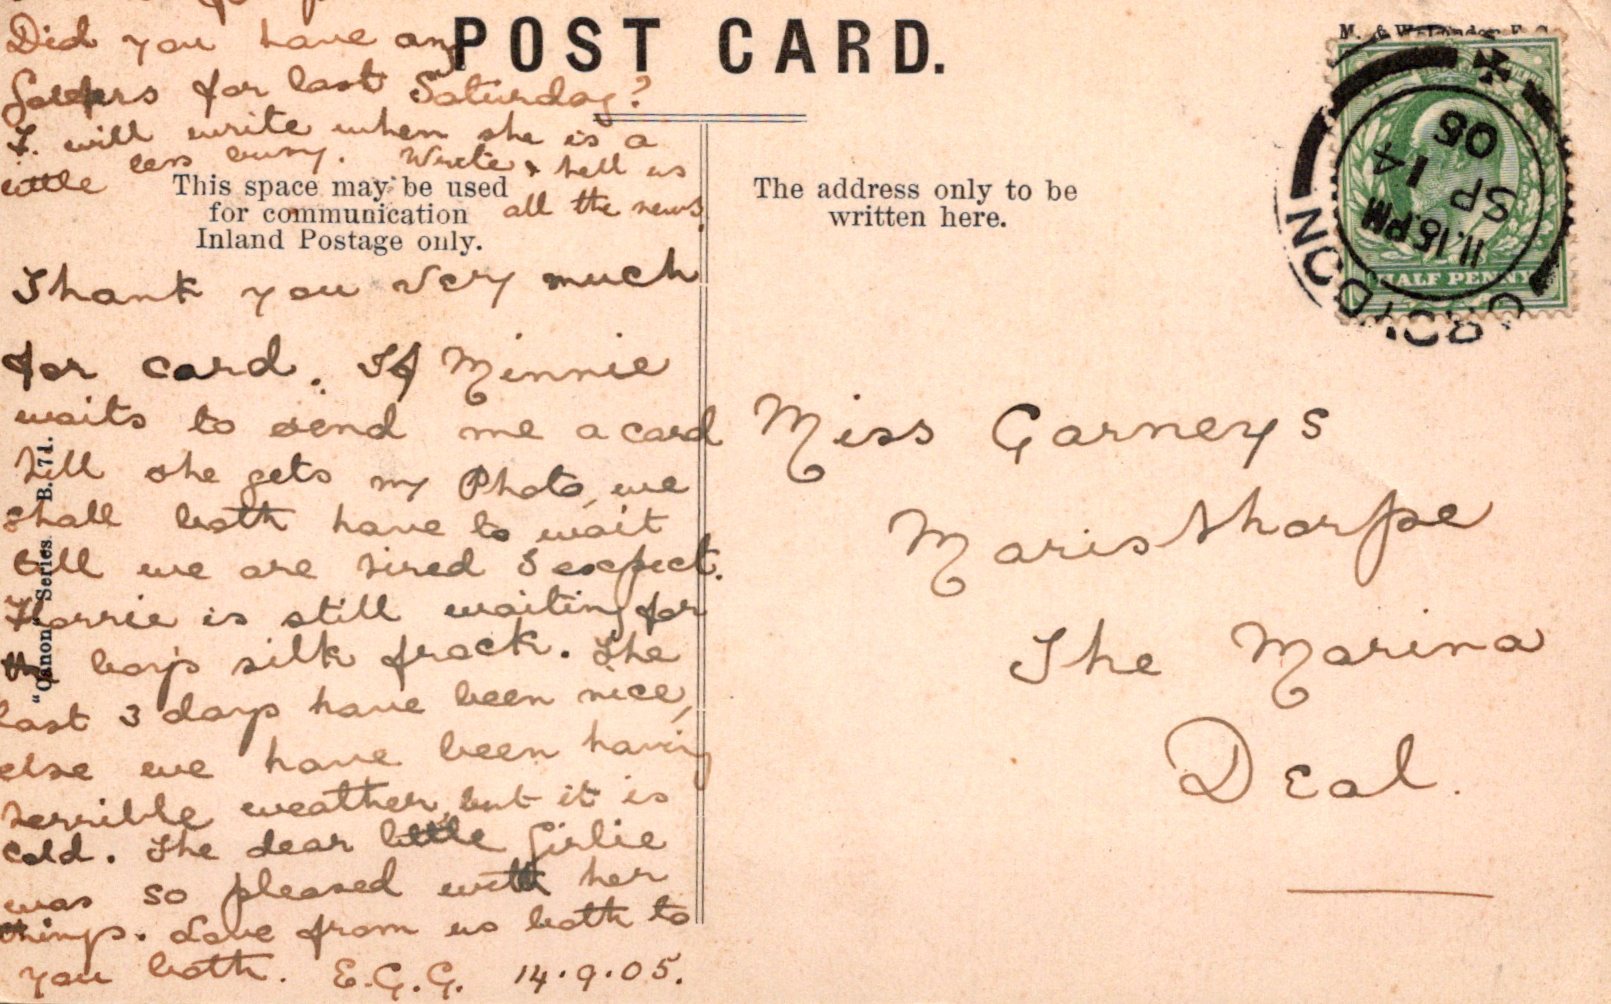 Did you have any
for last Saturday?
I. will write when she is a
little less busy. Write & tell us
all the news.
POST CARD.
This space may be used
for communication
Inland Postage only.
The address only to be
written here.
Thank you very much
for card. If Minnie
waits to send me a card
till she gets my Photo, we
shall both have to wait
till we are tired I expect.
Florrie is still waiting for
boy's silk frock. The
last 3 days have been nice,
else we have been having
terrible weather, but it is
cold. The dear little Girlie
was so pleased with her
things. Love from us both to
you both. E.G.G. 14.9.05.
"Canon" Series B.71.
Miss Garneys
Maristhorpe
The Marina
Deal.
CROYDON
11.15 PM
SP 14
05
HALF PENNY